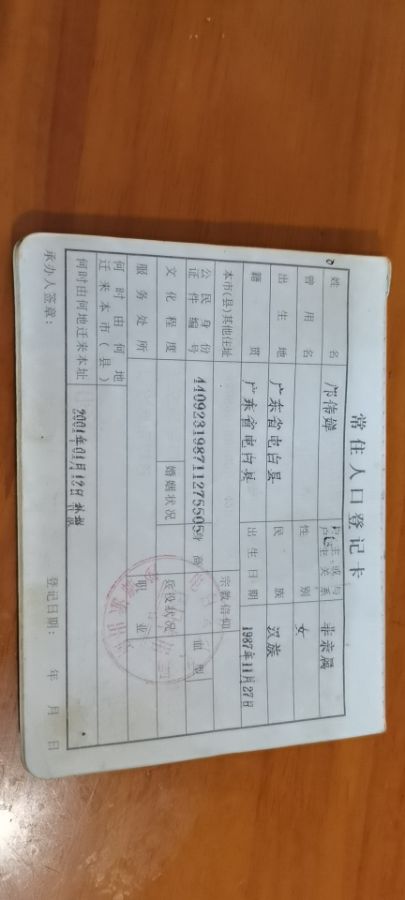 常住人口登记卡
姓名 邝伟婵 户主或与户主关系 非亲属
曾用名 性别 女
出生地 广东省电白县 民族 汉族
籍贯 广东省电白县 出生日期 1987年11月27日
本市(县)其他住址 宗教信仰
公民身份证件编号 440923198711275505 身高 血型
文化程度 婚姻状况 兵役状况
服务处所 职业
何时由何地迁来本市(县)
何时由何地迁来本址 2001年01月12日
承办人签章: 登记日期: 年 月 日